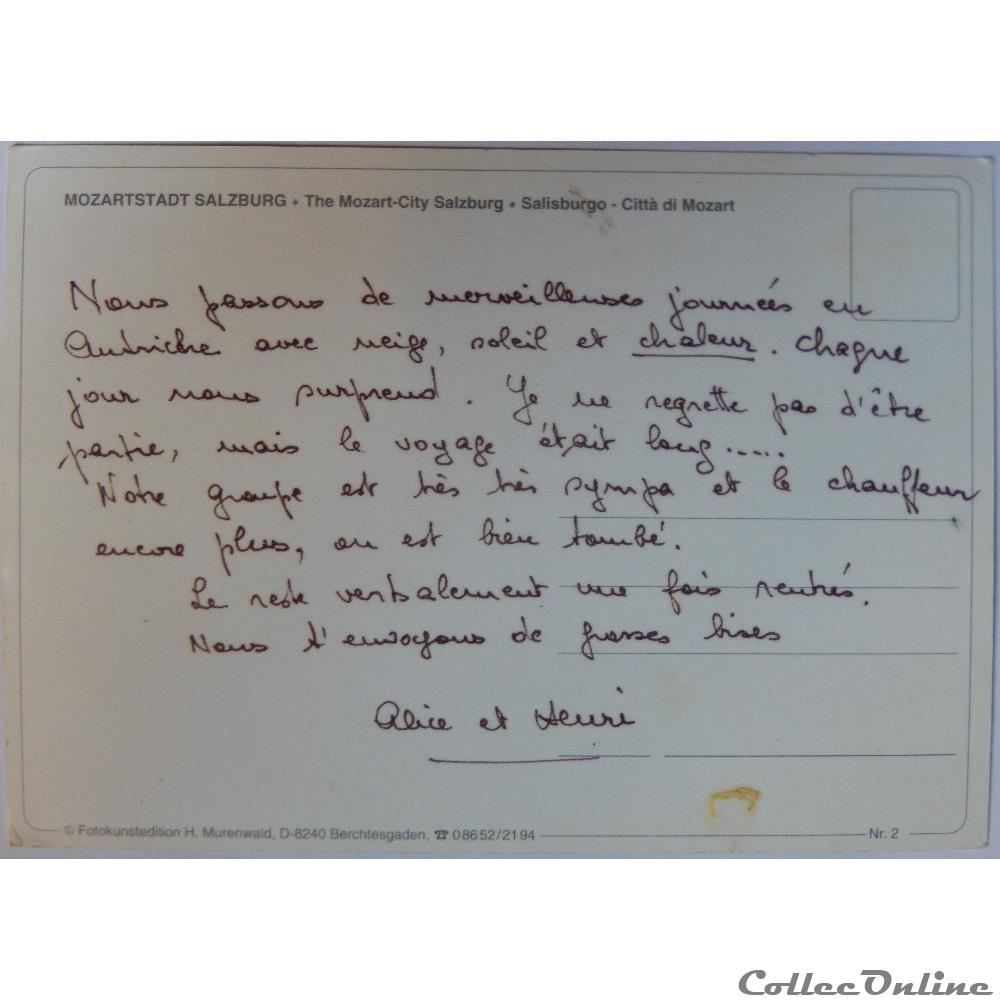 MOZARTSTADT SALZBURG • The Mozart-City Salzburg • Salisburgo - Città di Mozart
Nous passons de merveilleuses journées en
Autriche avec neige, soleil et chaleur. chaque
jour nous surprend. Je ne regrette pas d'être
partie, mais le voyage était long.....
Notre groupe est très très sympa et le chauffeur
encore plus, on est bien tombé.
Le reste verbalement une fois rentrés.
Nous t'envoyons de grosses bises
Alice et Henri
© Fotokunstedition H. Murenwald, D-8240 Berchtesgaden, ☎ 08652/2194 Nr. 2
CollecOnline